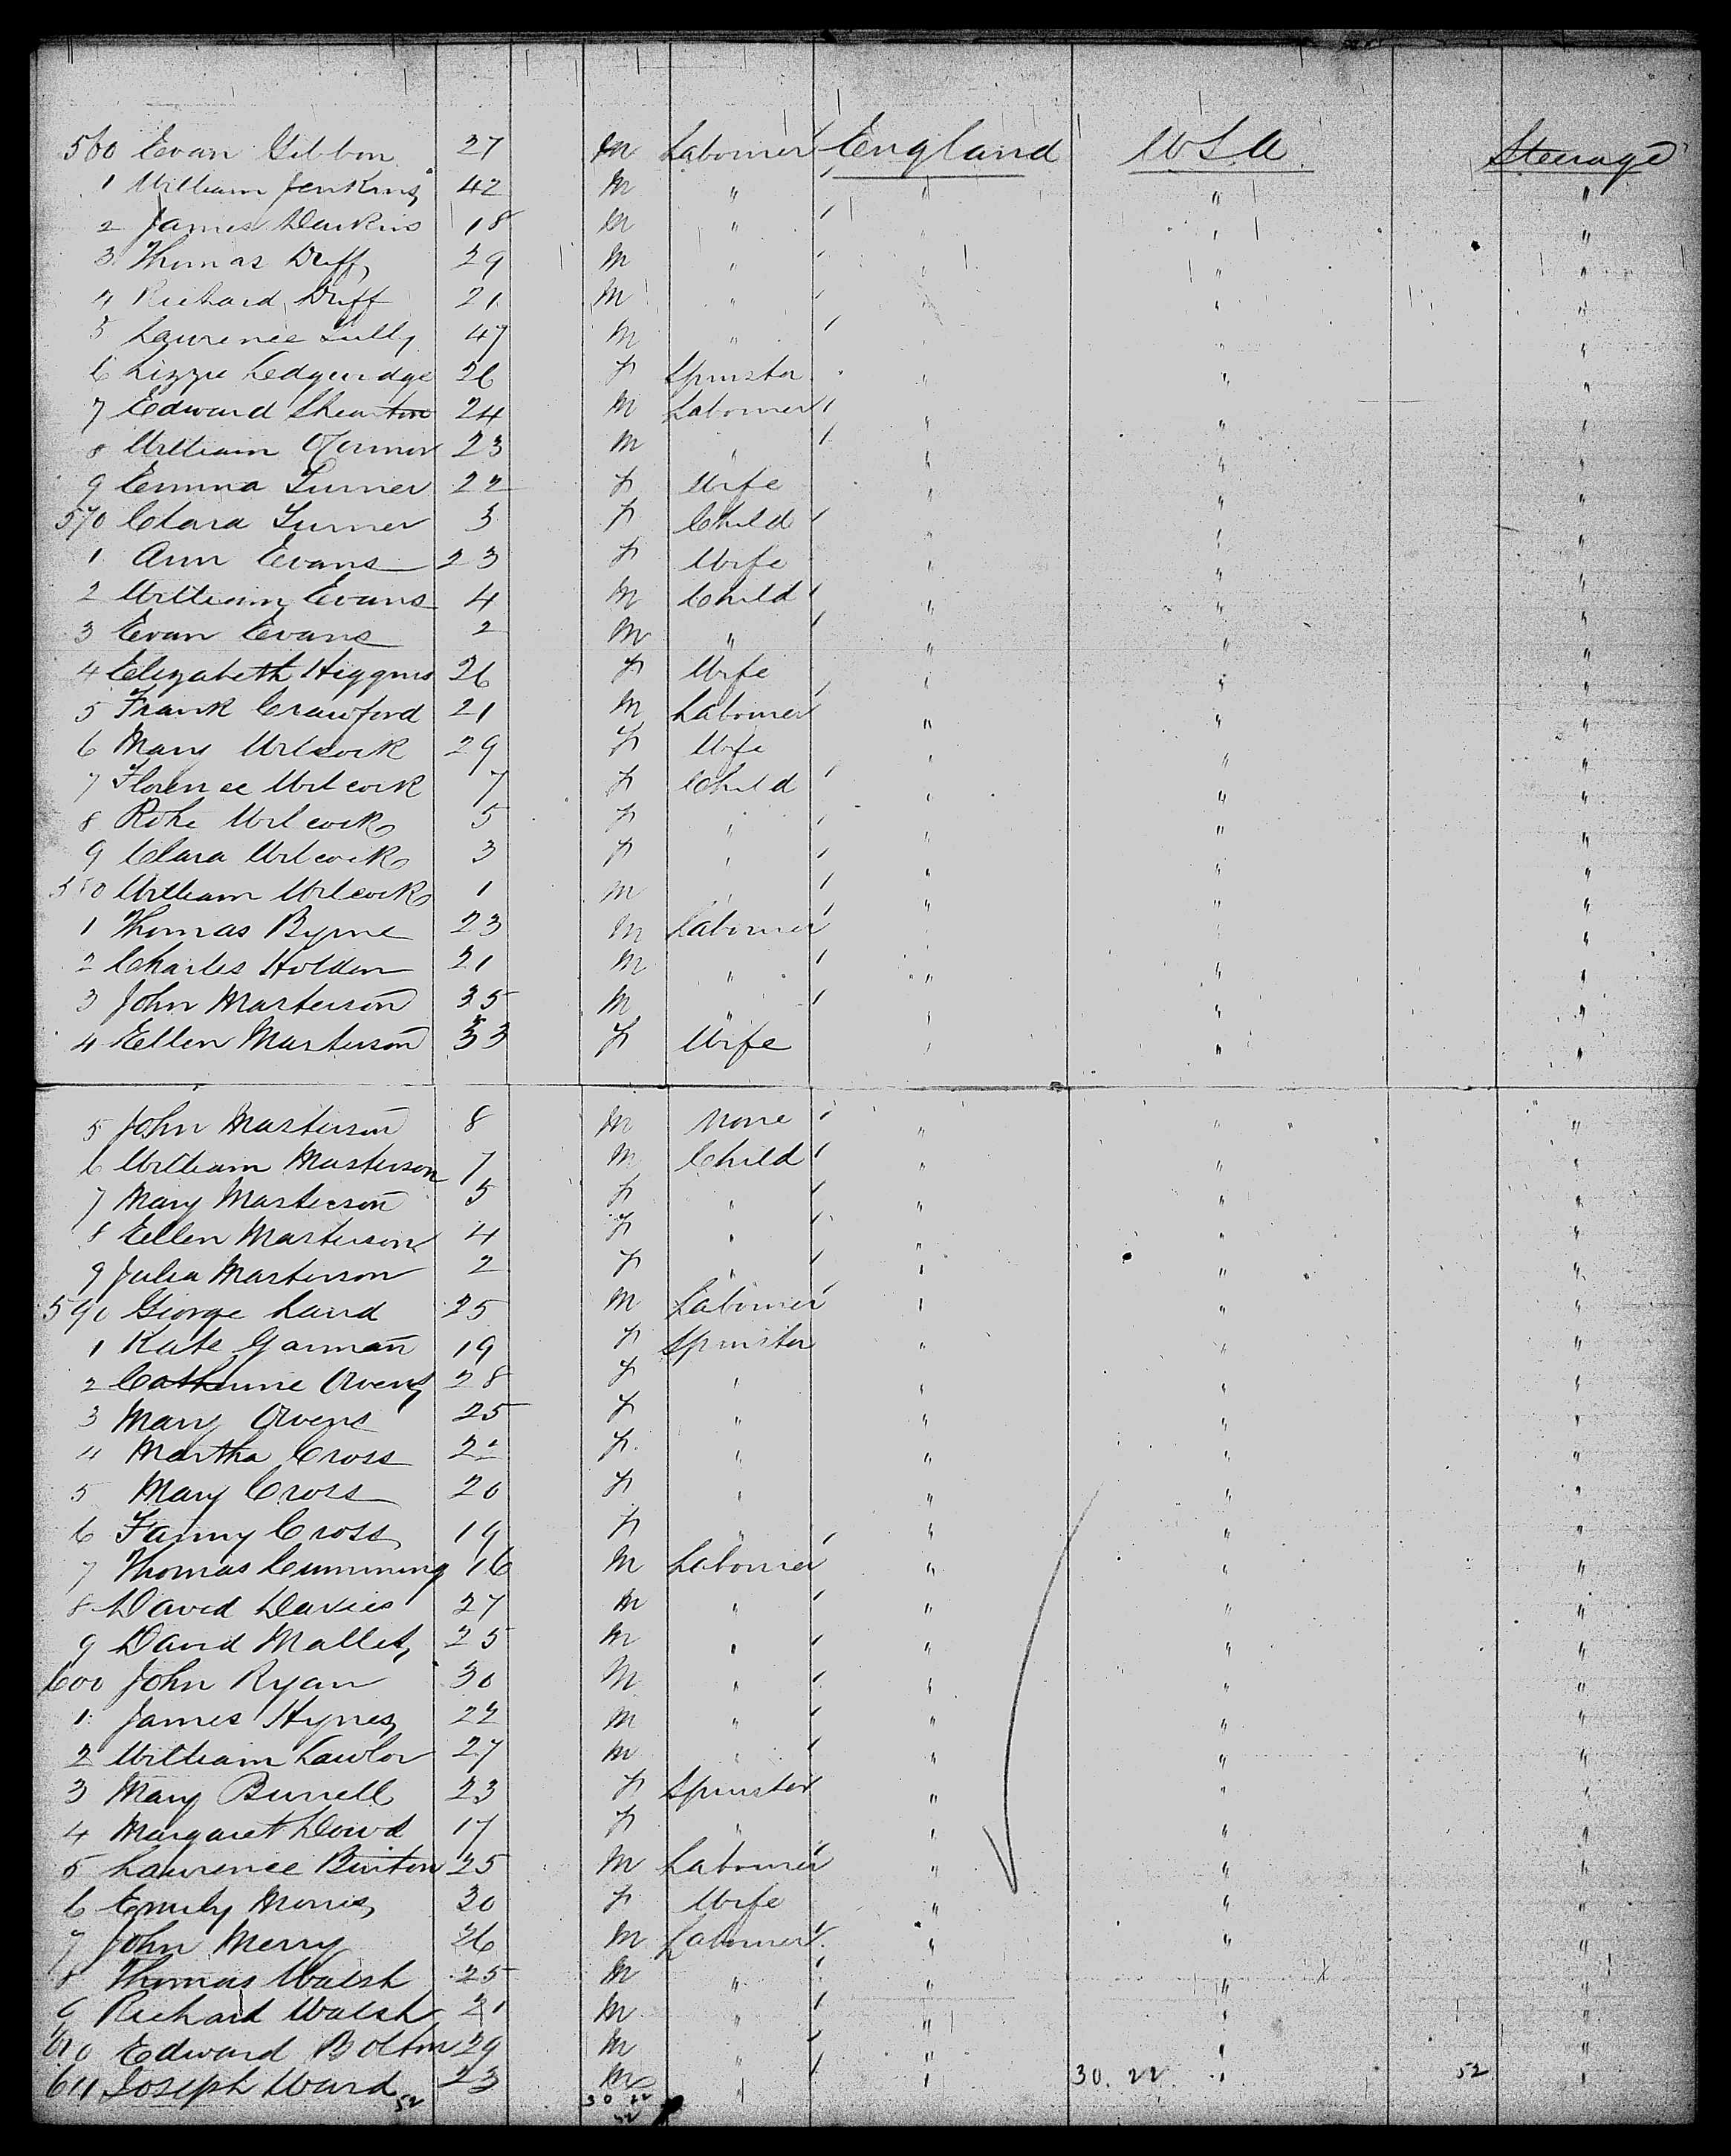 560 Evan Gibbon 27 M Labourer England USA Steerage
1 William Jenkins 42 M " " " "
2 James Dawkins 18 M " " "
3 Thomas Duff 29 M " " " "
4 Richard Duff 21 M " " " "
5 Lawrence Lully 47 M " " " "
6 Lizzie 26 F Spinster " " "
7 Edward 24 M Labourer " " "
8 William O'Connor 23 M " " " "
9 Emma Turner 22 F Wife " " "
570 Clara Turner 3 F Child " " "
1 Ann Evans 23 F Wife " " "
2 William Evans 4 M Child " " "
3 Evan Evans 2 M " " " "
4 Elizabeth Higgins 26 F Wife " " "
5 Frank Crawford 21 M Labourer " " "
6 Mary Wilcock 29 F Wife " " "
7 Florence Wilcock 7 F Child " " "
8 Wilcock 5 F " " " "
9 Clara Wilcock 3 F " " " "
580 William Wilcock 1 M " " " "
1 Thomas Byrne 23 M Labourer " " "
2 Charles Holden 21 M " " " "
3 John Masterson 35 M " " " "
4 Ellen Masterson 33 F Wife " " "
5 John Masterson 8 M None " " "
6 William Masterson 7 M Child " " "
7 Mary Masterson 5 F " " " "
8 Ellen Masterson 4 F " " " "
9 Julia Masterson 2 F " " " "
590 George Laird 25 M Labourer " " "
1 Kate Gorman 19 F Spinster " " "
2 Catherine Owens 28 F " " " "
3 Mary Owens 25 F " " " "
4 Martha Cross 22 F " " " "
5 Mary Cross 20 F " " " "
6 Fanny Cross 19 F " " " "
7 Thomas Cumming 16 M Labourer " " "
8 David Davies 27 M " " " "
9 David Mallet 25 M " " " "
600 John Ryan 30 M " " " "
1 James Hynes 22 M " " " "
2 William Lawlor 27 M " " " "
3 Mary Burrell 23 F Spinster " " "
4 Margaret Dowd 17 F " " " "
5 Lawrence Burton 25 M Labourer " " "
6 Emily Morris 30 F Wife " " "
7 John Merry 26 M Labourer " " "
8 Thomas Walsh 25 M " " " "
9 Richard Walsh 21 M " " " "
610 Edward Bolton 29 M " " " "
611 Joseph Ward 23 M " " 30. 22 " 52 "
52 30 22
52